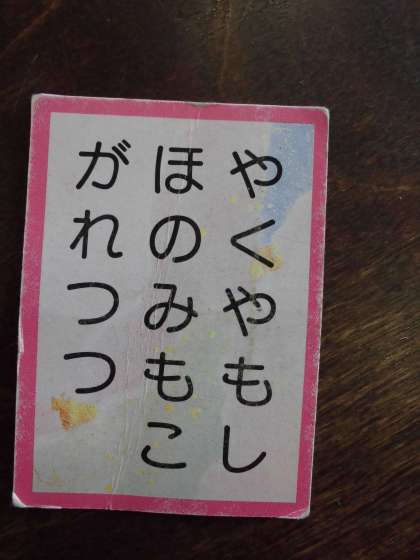 やくやもし
ほのみもこ
がれつつ